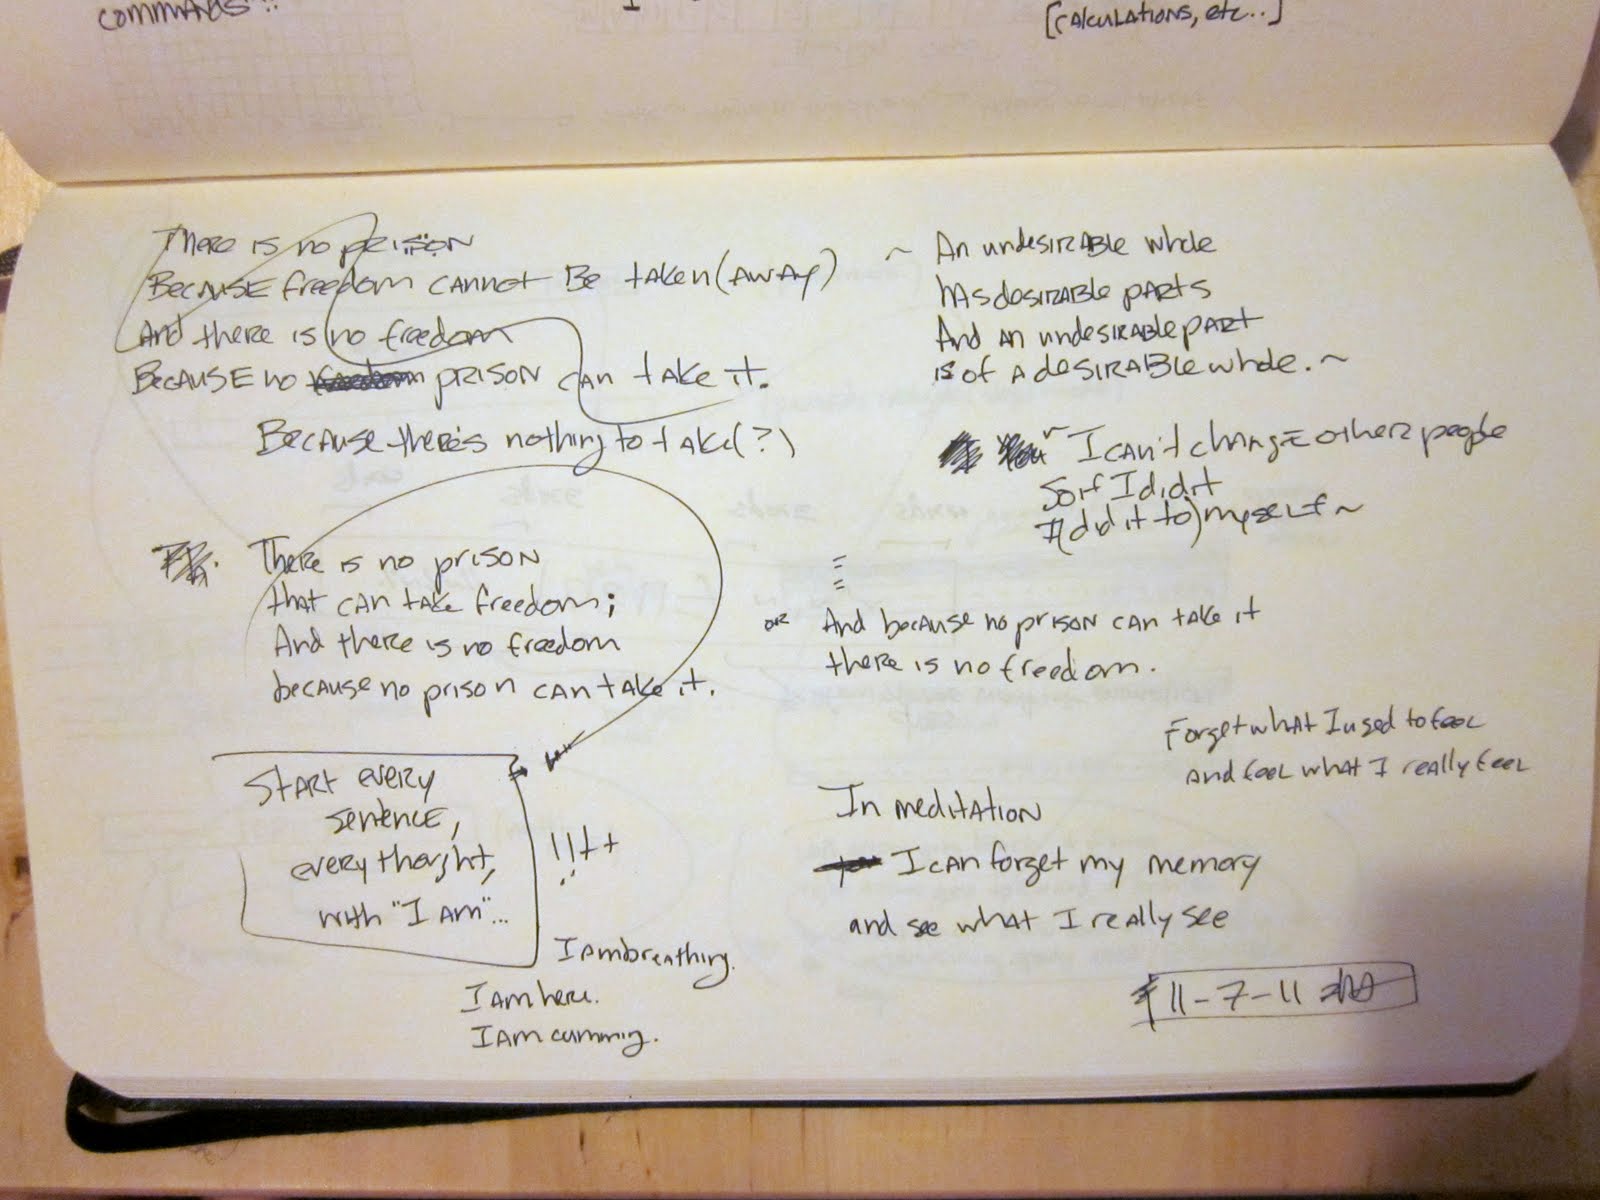 commands"!!
[calculations, etc..]
There is no prison
Because freedom cannot Be taken (away)
And there is no freedom
Because no prison can take it.
Because there's nothing to take(?)
There is no prison
that can take freedom;
And there is no freedom
because no prison can take it.
Start every
sentence,
every thought,
with "I am"...
!!++
I am breathing.
I am here.
I am cumming.
~ An undesirable whole
has desirable parts
And an undesirable part
is of a desirable whole. ~
~ I can't change other people
So if I did it
I (did it to) myself ~
or And because no prison can take it
there is no freedom.
Forget what I used to feel
and feel what I really feel
In meditation
I can forget my memory
and see what I really see
11-7-11